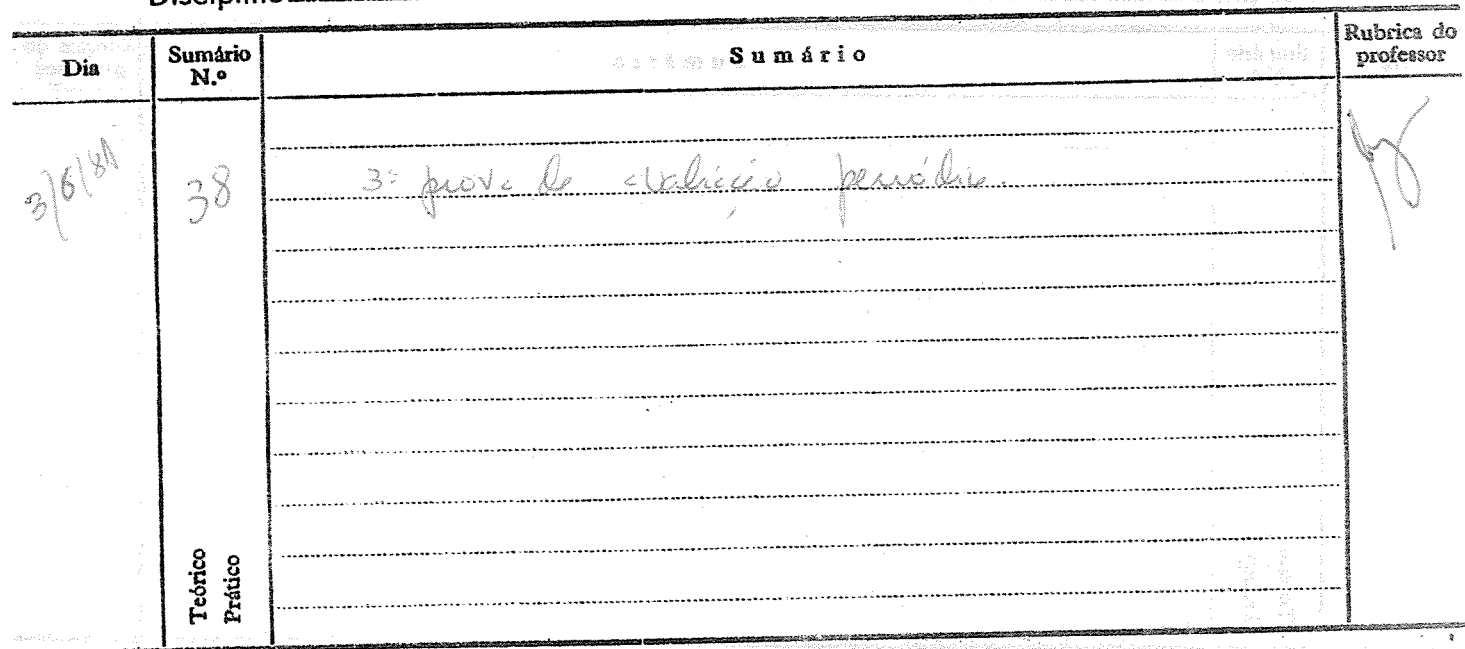 Dia
Sumário N.º
Sumário
Rubrica do professor
3/6/81
38
3ª prova de avaliação periódica.
Teórico
Prático